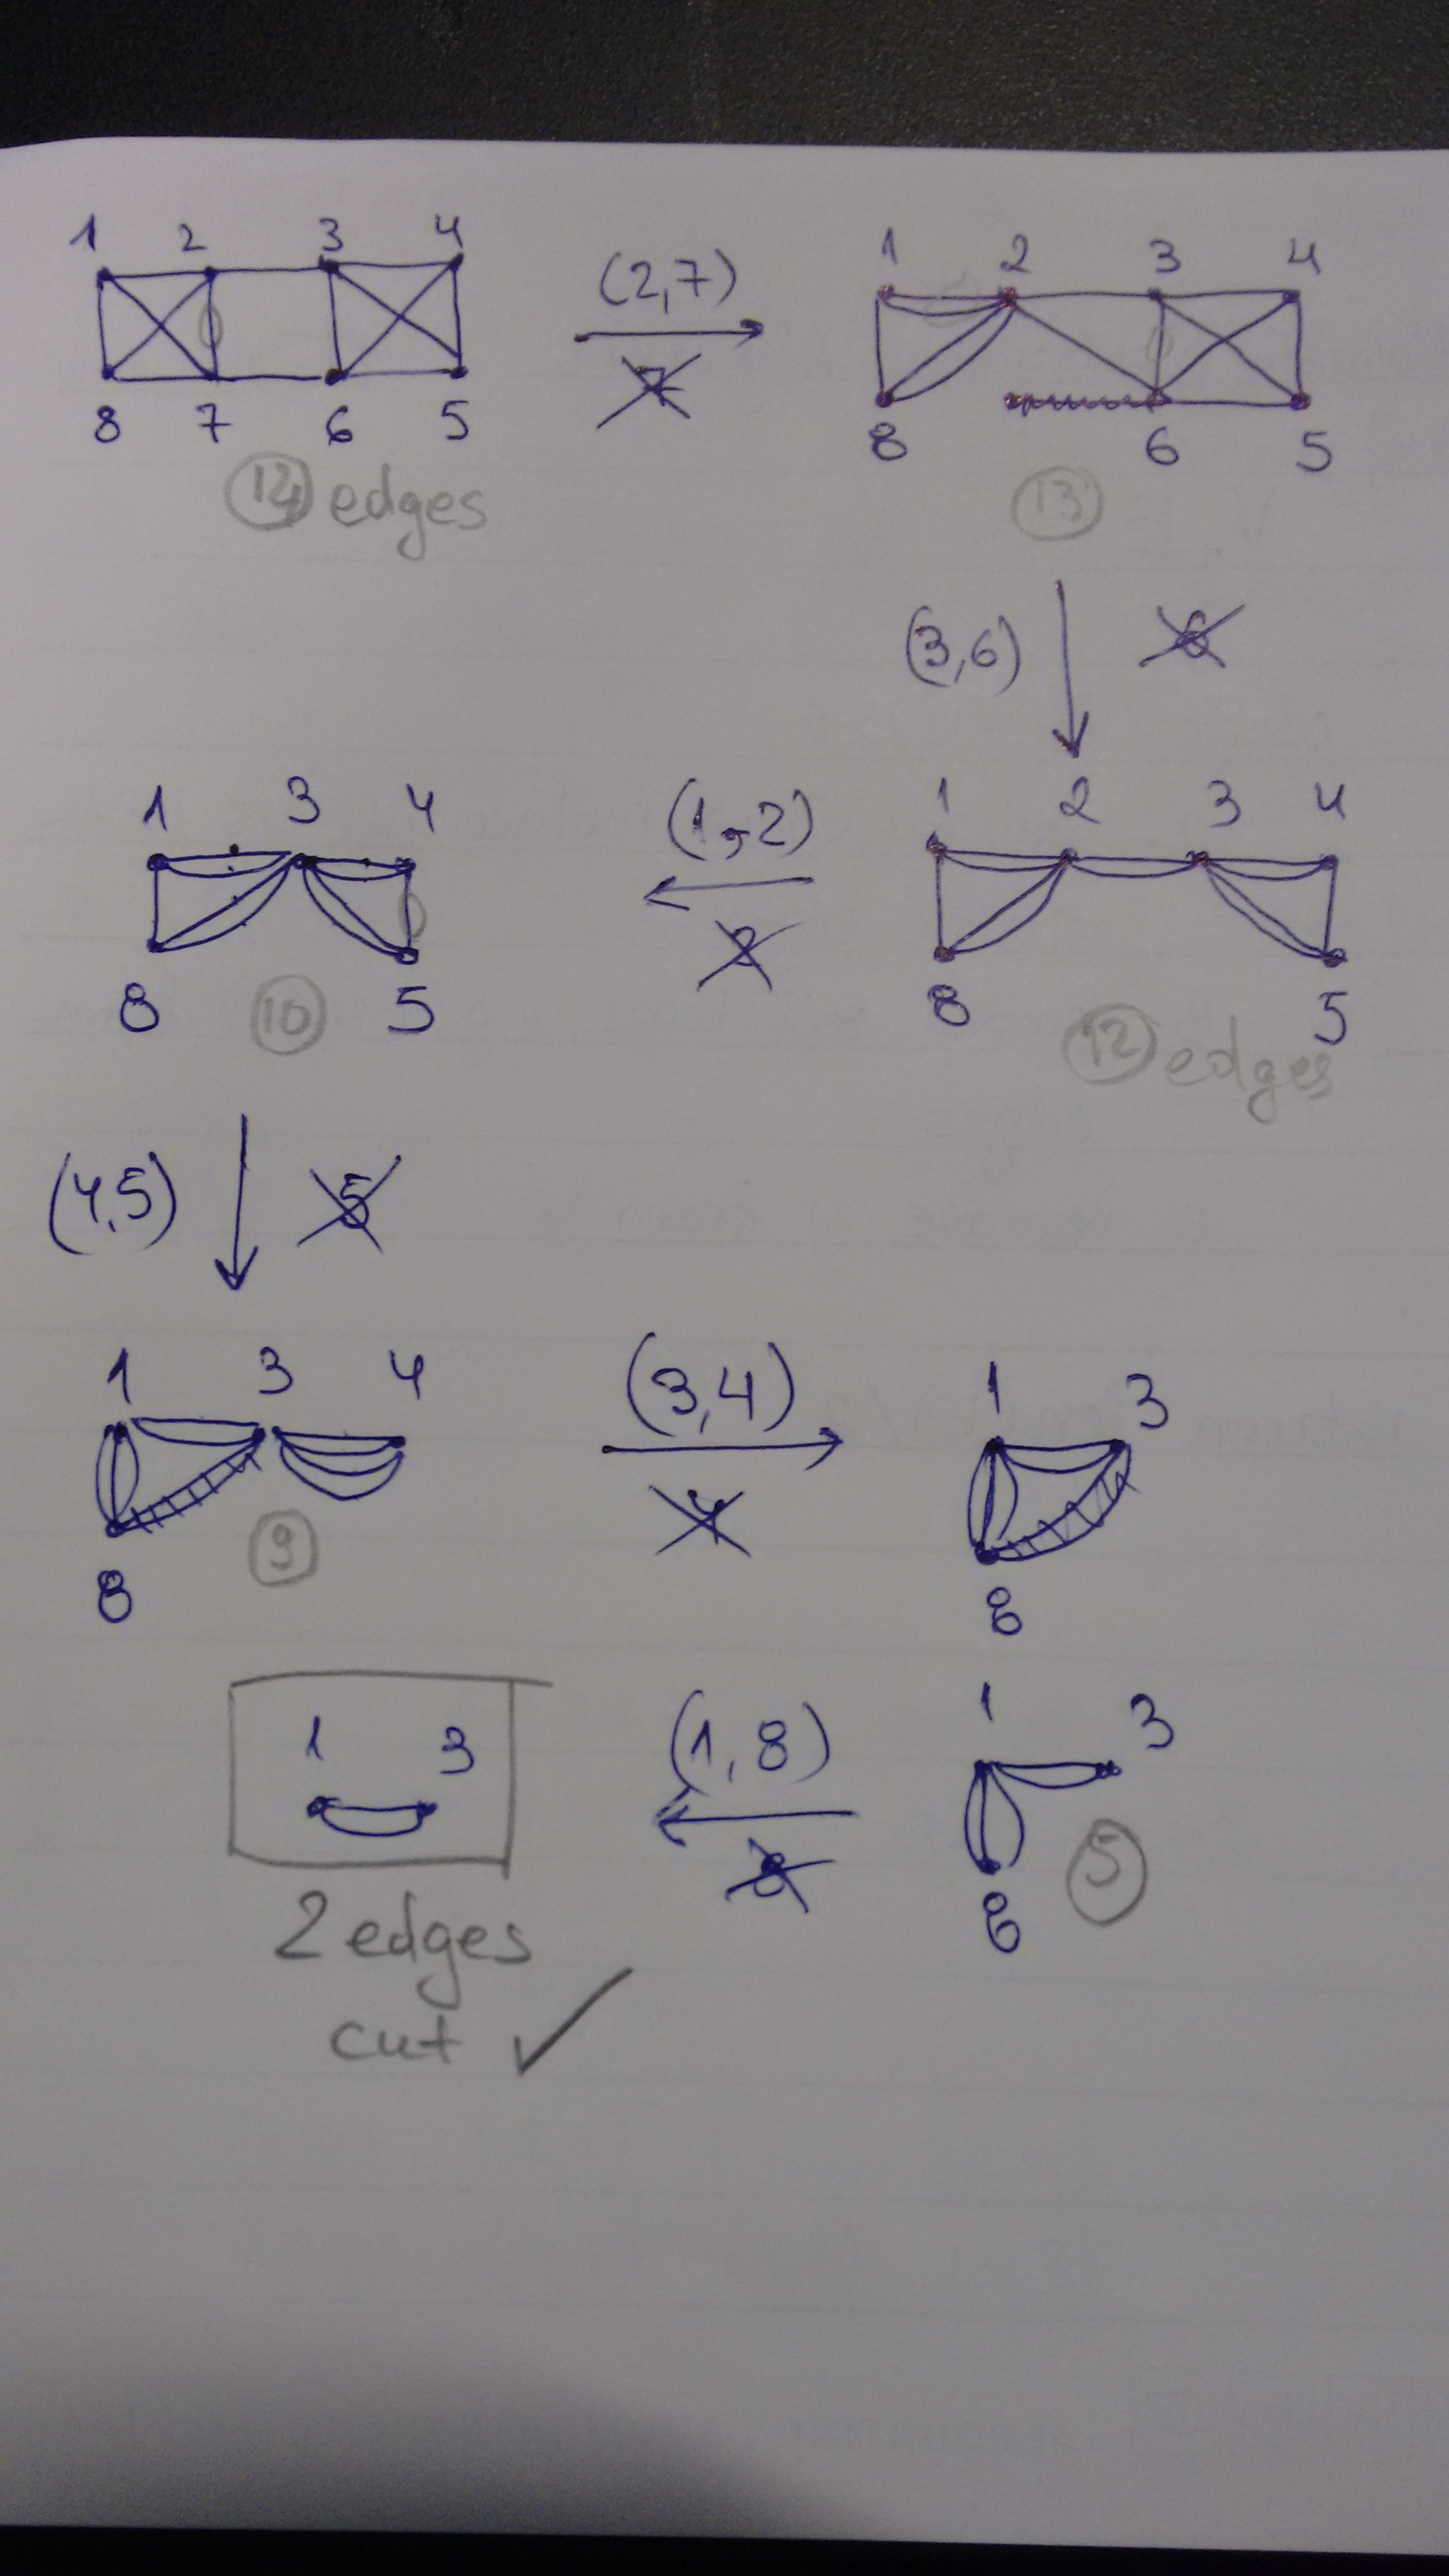 1 2 3 4
(2,7)
7
8 7 6 5
14 edges
1 2 3 4
8 6 5
13
(3,6) 6
1 2 3 4
8 5
12 edges
(1,2)
2
1 3 4
8 10 5
(4,5) 5
1 3 4
9
8
(3,4)
4
1 3
8
1 3
8 5
(1,8)
8
1 3
2 edges
cut ✓